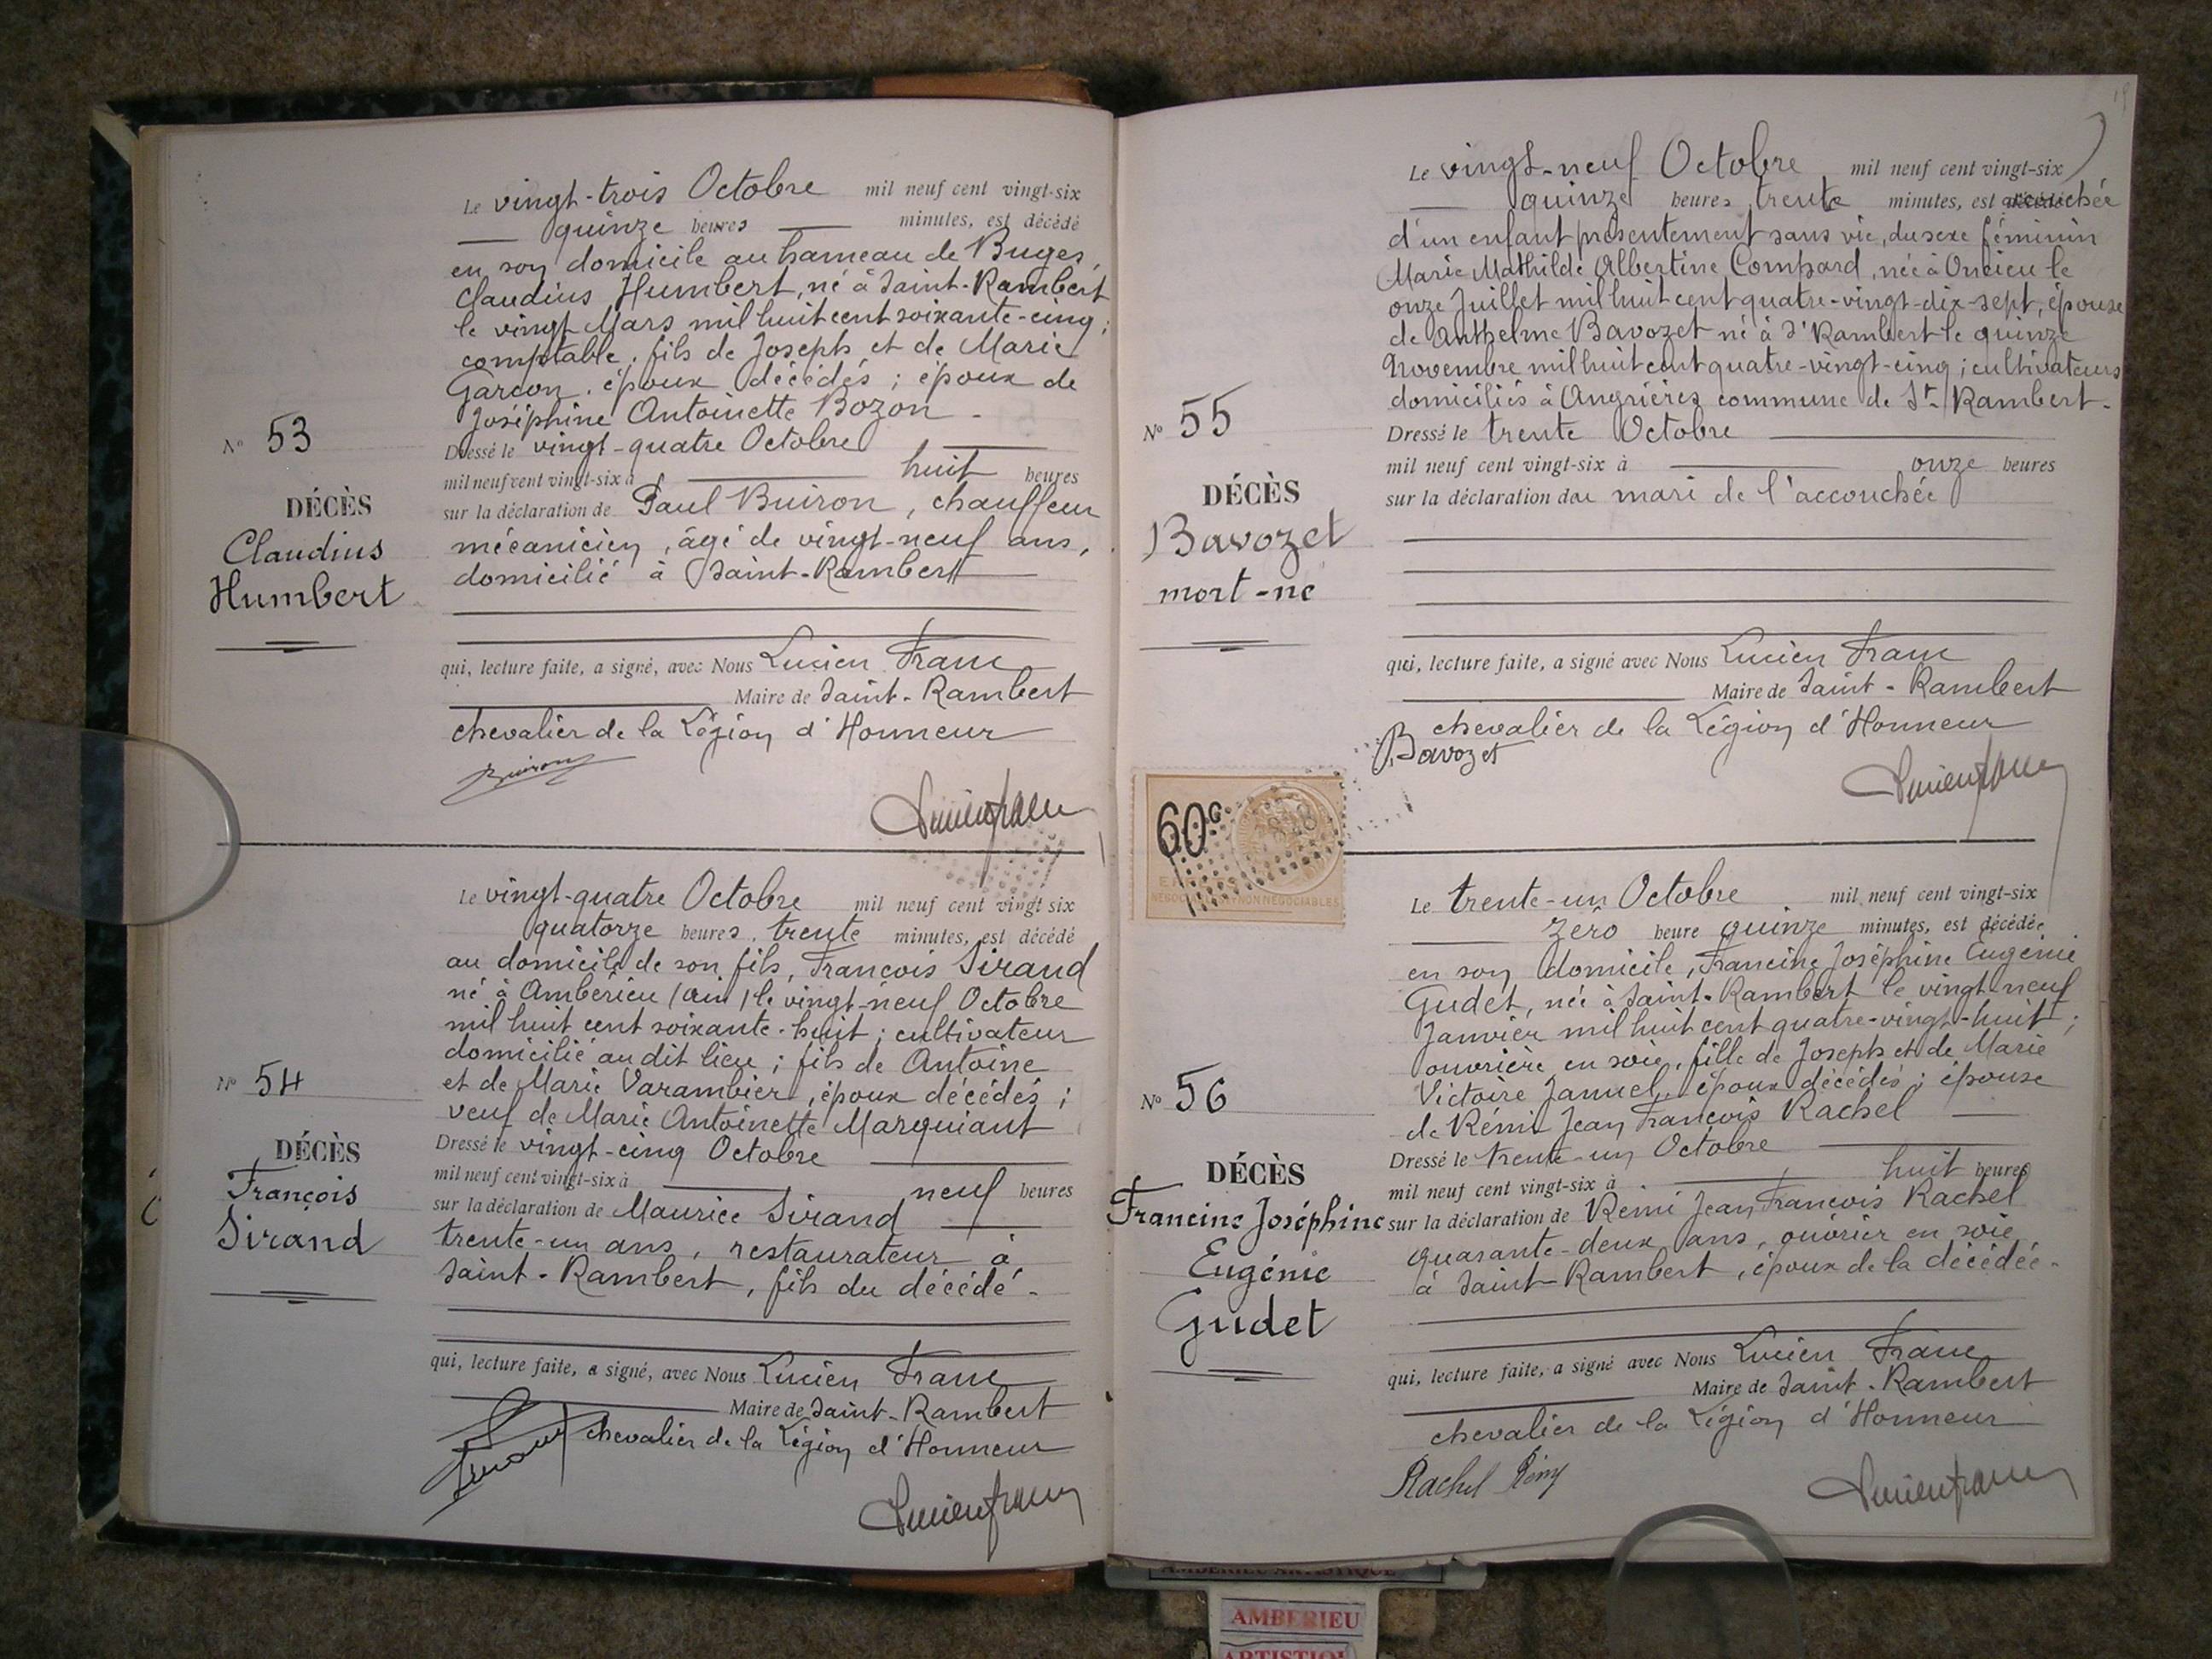 Le vingt-trois Octobre mil neuf cent vingt-six
quinze heures minutes, est décédé
en son domicile au hameau de Buges,
Claudius Humbert, né à Saint-Rambert
le vingt Mars mil huit cent soixante-cinq;
comptable. fils de Joseph et de Marie
Garcon. époux décédés ; époux de
Joséphine Antoinette Bozon -
Dressé le vingt-quatre Octobre
mil neuf cent vingt-six à huit heures
sur la déclaration de Paul Buiron, chauffeur
mécanicien, âgé de vingt-neuf ans,
domicilié à Saint-Rambert
qui, lecture faite, a signé, avec Nous Lucien Franc
Maire de Saint-Rambert
chevalier de la Légion d'Honneur
Buiron
Lucien franc
N° 53
DÉCÈS
Claudius
Humbert
Le vingt-quatre Octobre mil neuf cent vingt six
quatorze heures, trente minutes, est décédé
au domicile de son fils, François Sirand
né à Ambérieu (Ain) le vingt-neuf Octobre
mil huit cent soixante-huit; cultivateur
domicilié au dit lieu ; fils de Antoine
et de Marie Varambier, époux décédés ;
veuf de Marie Antoinette Marquiant
Dressé le vingt-cinq Octobre
mil neuf cent vingt-six à neuf heures
sur la déclaration de Maurice Sirand
trente-un ans, restaurateur à
Saint-Rambert, fils du décédé -
qui, lecture faite, a signé, avec Nous Lucien Franc
Maire de Saint-Rambert
chevalier de la Légion d'Honneur
Lucien franc
N° 54
DÉCÈS
François
Sirand
Le vingt-neuf Octobre mil neuf cent vingt-six
quinze heures trente minutes, est accouchée
d'un enfant présentement sans vie, du sexe féminin
Marie Mathilde Albertine Compard, née à Oncieu le
onze Juillet mil huit cent quatre-vingt-dix-sept, épouse
de Anthelme Bavozet né à St Rambert le quinze
Novembre mil huit cent quatre-vingt-cinq ; cultivateurs
domiciliés à Angrières commune de St-Rambert.
Dressé le trente Octobre
mil neuf cent vingt-six à onze heures
sur la déclaration du mari de l'accouchée
qui, lecture faite, a signé avec Nous Lucien Franc
Maire de Saint-Rambert
chevalier de la Légion d'Honneur
Bavozet
Lucien franc
N° 55
DÉCÈS
Bavozet
mort-né
60c
NON NEGOCIABLES
Le trente-un Octobre mil neuf cent vingt-six
zéro heure quinze minutes, est décédée
en son domicile, Francine Joséphine Eugénie
Gudet, née à Saint-Rambert le vingt-neuf
Janvier mil huit cent quatre-vingt-huit ;
ouvrière en soie, fille de Joseph et de Marie
Victoire Januel, époux décédés ; épouse
de Rémi Jean François Rachel
Dressé le trente-un Octobre
mil neuf cent vingt-six à huit heures
sur la déclaration de Rémi Jean François Rachel
quarante-deux ans, ouvrier en soie
à Saint-Rambert, époux de la décédée -
qui, lecture faite, a signé avec Nous Lucien Franc
Maire de Saint-Rambert
chevalier de la Légion d'Honneur
Rachel Rémy
Lucien franc
N° 56
DÉCÈS
Francine Joséphine
Eugénie
Gudet
AMBERIEU ARTISTIQUE
AMBERIEU